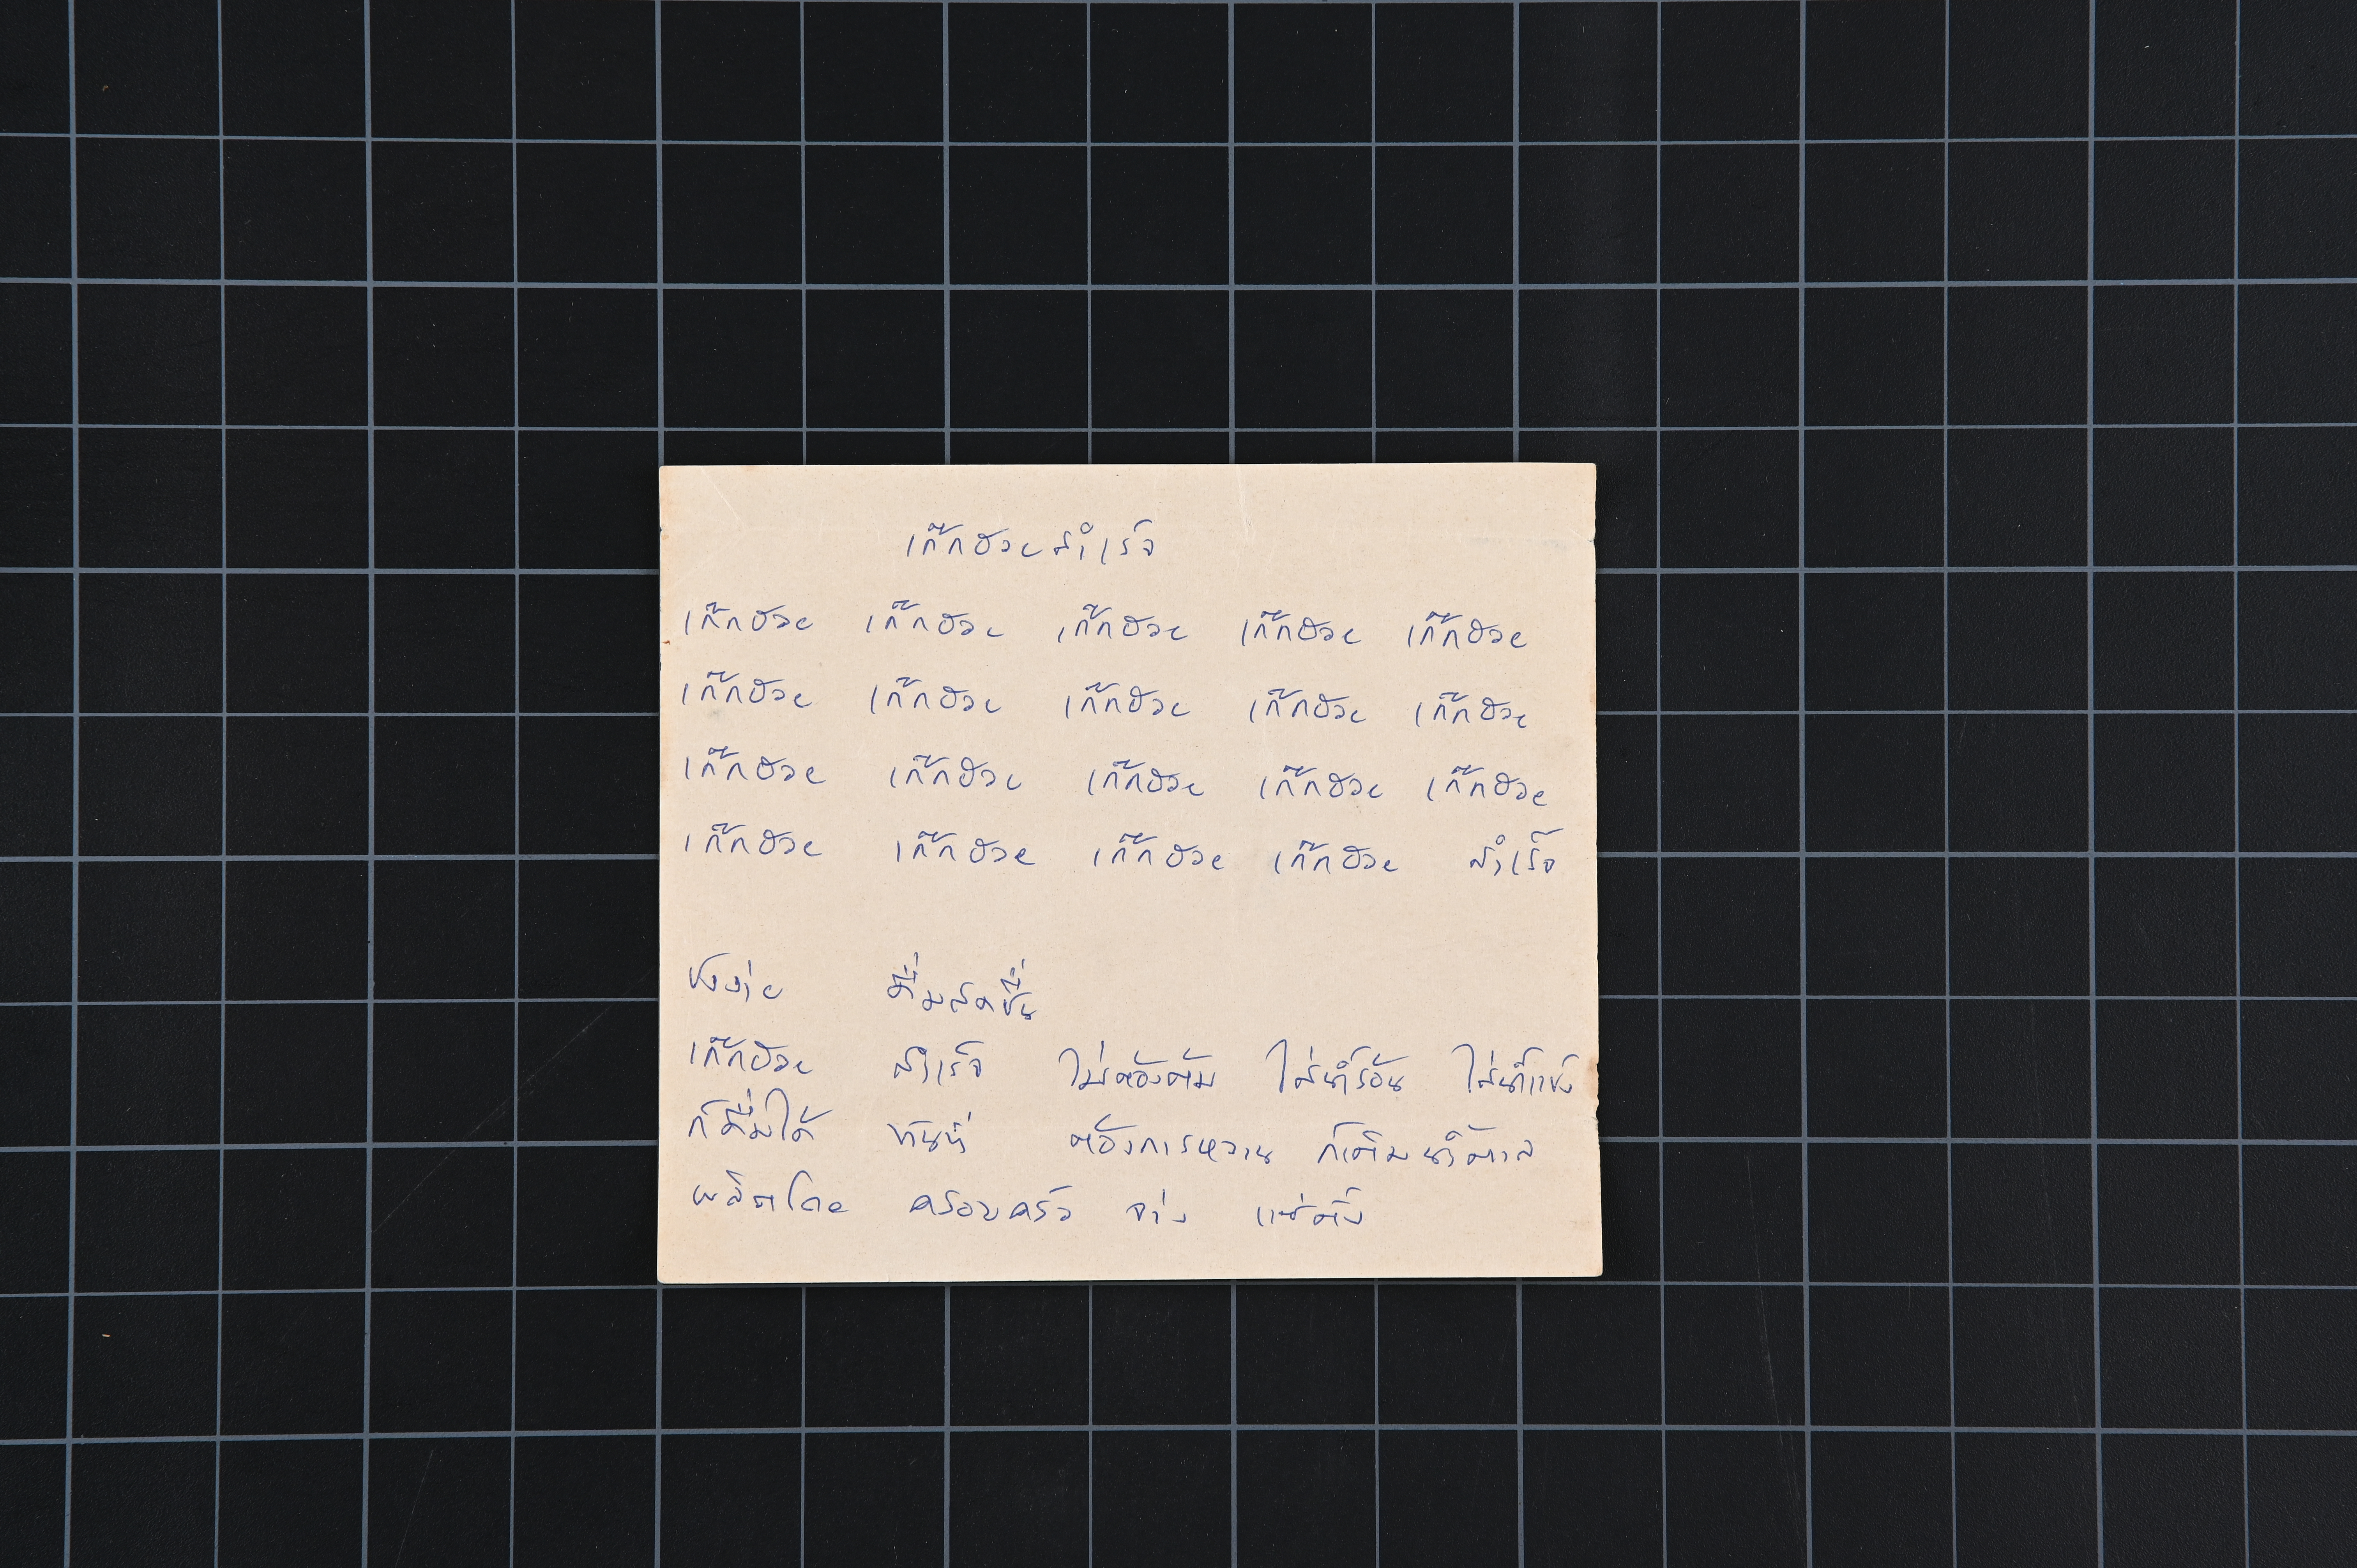 เก๊กฮวยสำเร็จ
เก๊กฮวย เก๊กฮวย เก๊กฮวย เก๊กฮวย เก๊กฮวย
เก๊กฮวย เก๊กฮวย เก๊กฮวย เก๊กฮวย เก๊กฮวย
เก๊กฮวย เก๊กฮวย เก๊กฮวย เก๊กฮวย เก๊กฮวย
เก๊กฮวย เก๊กฮวย เก๊กฮวย เก๊กฮวย สำเร็จ
ชงง่าย ดื่มสดชื่น
เก๊กฮวย สำเร็จ ไม่ต้องต้ม ใส่น้ำร้อน ใส่น้ำแข็ง
ก็ดื่มได้ ทันที ต้องการหวาน ก็เติมน้ำตาล
ผลิตโดย ครอบครัว จ่าง แซ่ตั้ง